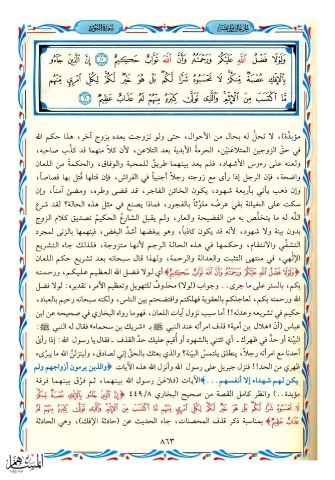 الجزء الثامن عشر
سورة النور
وَلَوْلَا فَضْلُ اللَّهِ عَلَيْكُمْ وَرَحْمَتُهُ وَأَنَّ اللَّهَ تَوَّابٌ حَكِيمٌ ۝١٠ إِنَّ الَّذِينَ جَاءُو
بِالْإِفْكِ عُصْبَةٌ مِنكُمْ لَا تَحْسَبُوهُ شَرًّا لَّكُم بَلْ هُوَ خَيْرٌ لَّكُمْ لِكُلِّ امْرِئٍ مِنْهُم
مَّا اكْتَسَبَ مِنَ الْإِثْمِ وَالَّذِي تَوَلَّى كِبْرَهُ مِنْهُمْ لَهُ عَذَابٌ عَظِيمٌ ۝١١
مؤبدة)، لا تحلُّ له بحال من الأحوال، حتى ولو تزوجت بعده بزوج آخر، هذا حكم الله
في حقِّ الزوجين المتلاعنَيْن، الحرمة الأبدية بعد التلاعن، لأن كلاً منهما قد كذَّب صاحبه،
ولعنه على رءوس الأشهاد، فلم يعد بينهما طريقٌ للمحبة والوفاق، والحكمة من اللعان
واضحة، فإن الرجل إذا رأى مع زوجته رجلاً أجنبياً في الفراش، فإن قتلها قُتل بها قصاصاً،
وإن ذهب يأتي بأربعة شهود، يكون الخائن الفاجر، قد قضى وطره، ومضى آمناً، وإن
سكت على الخيانة بقي عرضه ملوَّثاً بالفجور، فماذا يصنع في مثل هذه الحالة؟ لقد شرع
الله له ما يتخلَّص به من الفضيحة والعار، ولم يقبل الشارعُ الحكيمُ تصديق كلام الزوج
بدون بينة ولا شهود، لأنه قد يكون كاذباً، وهو يبغضها أشدَّ البغض، فيتهمها بالزنى لمجرد
التشفِّي والانتقام، وحكمها في هذه الحالة الرجم لأنها متزوجة، فلذلك جاء التشريع
الإلهي، في منتهى التثبت والعدالة والرحمة، ولهذا قال سبحانه بعد تشريع حكم اللعان
﴿وَلَوْلَا فَضْلُ اللَّهِ عَلَيْكُمْ وَرَحْمَتُهُ وَأَنَّ اللَّهَ تَوَّابٌ حَكِيمٌ﴾ أي لولا فضل الله العظيم عليكم، ورحمته
بكم، بالستر على ما جرى.. وجواب (لولا) محذوفٌ للتهويل وتعظيم الأمر، تقديره: لولا فضل
الله ورحمته بكم، لعاجلكم بالعقوبة فهلكتم وافتضحتم بين الناس، ولكنه سبحانه رحيم بالعباد،
حكيم في تشريعه وعدله!! أما سبب نزول آيات اللعان، فهو ما رواه البخاري في صحيحه عن ابن
عباس (أن هلال بن أمية) قذف امرأته عند النبي ﷺ بـ «شريك بن سحماء» فقال له النبي ﷺ:
البيِّنة أو حدٌّ في ظهرك.. أي ائتني بالشهود أو أُقيم عليك حدَّ القذف ـ فقال يا رسول الله: إذا رأى
أحدنا مع امرأته رجلاً، ينطلق يلتمسُ البيِّنة؟ والذي بعثك بالحقِّ إني لصادق، ولينزلنَّ الله ما يبرِّىء
ظهري من الحد!! فنزل جبريل على رسول الله وأنزل الله هذه الآيات ﴿والذين يرمون أزواجهم ولم
يكن لهم شهداء إلا أنفسهم..﴾ الآيات (فلاعَنَ رسول الله بينهما، ثم فرَّق بينهما فرقة
مؤبدة..) وانظر كامل القصة من صحيح البخاري ٤٤٩/٨ ﴿إِنَّ الَّذِينَ جَاءُو بِالْإِفْكِ عُصْبَةٌ مِنكُمْ
لَا تَحْسَبُوهُ شَرًّا لَّكُم بَلْ هُوَ خَيْرٌ لَّكُمْ لِكُلِّ امْرِئٍ مِنْهُم مَّا اكْتَسَبَ مِنَ الْإِثْمِ وَالَّذِي تَوَلَّى كِبْرَهُ مِنْهُمْ لَهُ
عَذَابٌ عَظِيمٌ﴾ بمناسبة ذكر قذف المحصنات، جاء الحديث عن (حادثة الإفك)، وهي الحادثة
٨٦٣